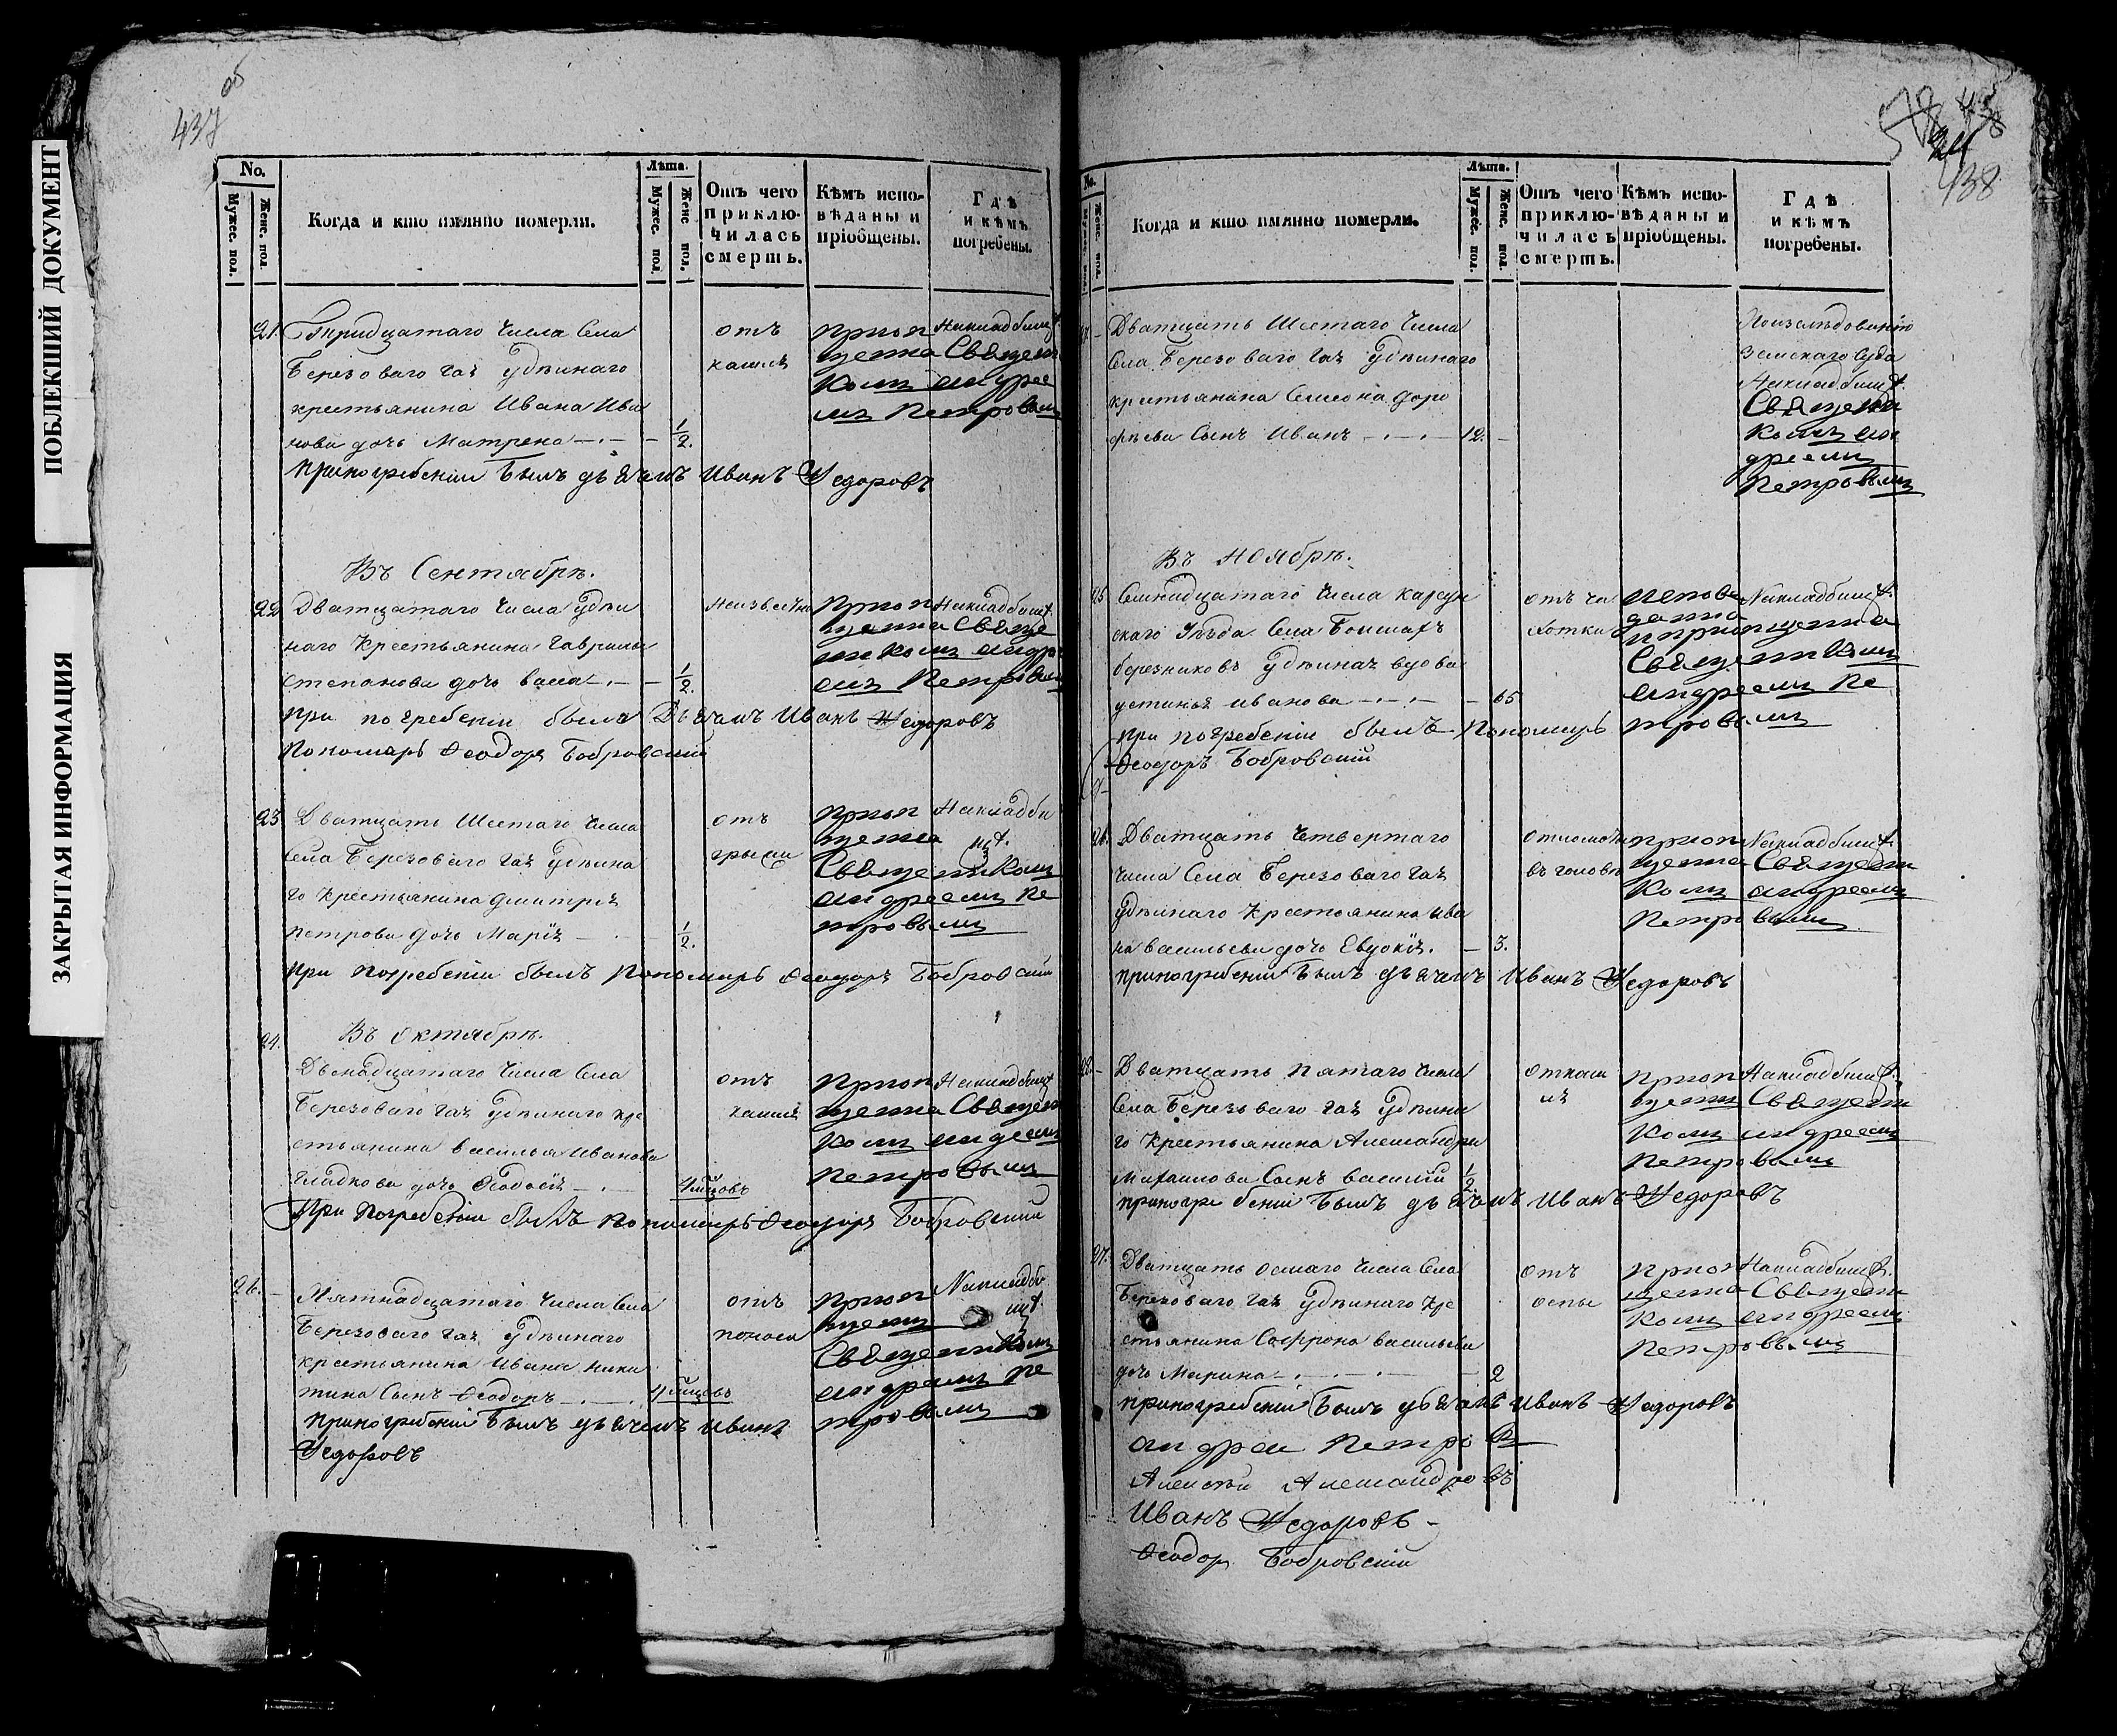 ПОБЛЕКШИЙ ДОКУМЕНТ
ЗАКРЫТАЯ ИНФОРМАЦИЯ
437
об
No.
Мужес. пол.
Женс. пол.
Когда и кто имянно померли.
Лѣта.
Мужес. пол.
Женс. пол.
Отъ чего приклю-
чилась
смерть.
Кѣмъ испо-
вѣданы и
пріобщены.
Гдѣ
и кѣмъ
погребены.
21. Тридцатаго Числа Села
Березоваго Гая Удѣлнаго
крестьянина Ивана Ива
нова дочь Матрена — 1/2.
отъ
кашля
приоп
щена Священ
комъ андрее
мъ Петровым
На кладбищѣ
При погребении Былъ дьячекъ Иванъ Федоровъ
Въ Сентябрѣ.
22 Дватцатаго Числа Удѣл
наго Крестьянина Гаврилы
степанова дочь — 1/2.
Неизвестно
приоп
щенна Свяще
никомъ андре
емъ Петровым
На кладбищѣ
при погребении былъ Дьячекъ Иванъ Федоровъ
Пономарь Феодоръ Бобровский
23 Дватцать Шестаго Числа
Села Березоваго Гая Удѣлна
го Крестьянина Дмитрия
петрова дочь Мария — 1/2.
отъ
грыжи
приоп
щена
Священикомъ
андреемъ Пе
тровымъ
На кладби
щѣ
при погребении былъ Пономарь Феодоръ Бобровский
24. Въ Октябрѣ.
Двенадцатаго Числа Села
Березоваго Гая Удѣлнаго кре
стьянина василья Иванова
Гладкова дочь Феодосия — 4 мцовъ
отъ
кашля
приоп
щенна Священ
комъ андеемъ
Петровымъ
На кладбищѣ
При погребении былъ пономарь Феодоръ Бобровский
26. Пятнадцатаго Числа Села
Березоваго Гая Удѣлнаго
крестьянина Ивана Ники
тина Сынъ Феодоръ — 4 мцовъ
отъ
поноса
приоп
щенъ
Священикомъ
андреемъ Пе
тровымъ
На кладби
щѣ
При погребении Былъ дьячекъ Иванъ
Федоровъ
438
No.
Женс. пол.
Когда и кто имянно померли.
Лѣта.
Мужес. пол.
Женс. пол.
Отъ чего
приклю-
чилась
смерть.
Кѣмъ испо-
вѣданы и
пріобщены.
Гдѣ
и кѣмъ
погребены.
Дватцать Шестаго Числа
Села Березоваго Гая Удѣлнаго
крестьянина Семиона доро
фѣева Сынъ Иванъ — 12.
По изслѣдованию
Земскаго Суда
На кладбищѣ
Священи
комъ ан
дреемъ
Петровымъ
Въ Ноябрѣ.
25 Семнадцатаго Числа карсун
скаго Уѣзда Села Большахъ
березниковъ Удѣлная вдова
устинья иванова — 65
отъ ча
хотки
испове
данна
и приопщенна
Священикомъ
андреемъ Пе
тровымъ
На кладбищѣ
при погребении былъ Пономарь
Феодоръ Бобровский
26. Дватцать Четвертаго
Числа Села Березоваго Гая
Удѣлнаго Крестьянина Ива
на васильева дочь Евдокия. — 3.
в голове
приоп
щенна Священи
комъ андреемъ
Петровымъ
На кладбищѣ
При погребении Былъ дьячекъ Иванъ Федоровъ
28. Дватцать Пятаго Числа
Села Березоваго Гая Удѣлна
го Крестьянина Александра
Михаилова Сынъ василий 1/2
от каш
ля
приоп
щенъ Священи
комъ андреемъ
Петровымъ
На кладбищѣ
При погребении Былъ дьячекъ Иванъ Федоровъ
27. Дватцать осмаго Числа Села
Березоваго Гая Удѣлнаго Кре
стьянина Софрона васильева
дочь Марина — 2
отъ
оспы
приоп
щенна Священи
комъ андреемъ
Петровымъ
На кладбищѣ
При погребении Былъ дьячекъ Иванъ Федоровъ
андреи Петровъ
Алексѣй Александровъ
Иванъ Федоровъ
Феодоръ Бобровский